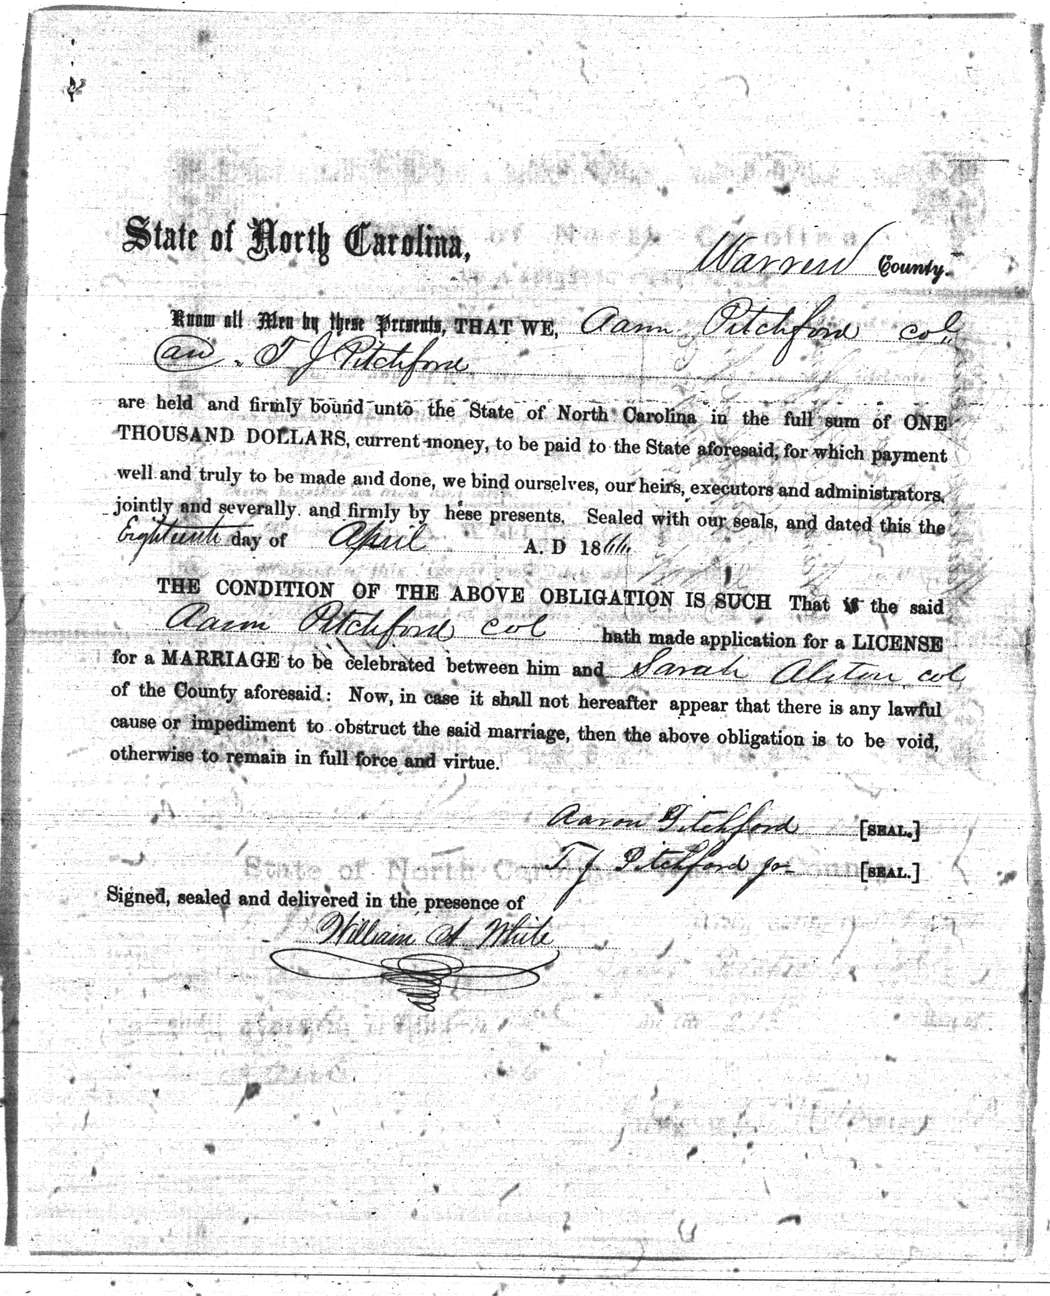 State of North Carolina,
Warren County.
Know all Men by these Presents, THAT WE, Aaron Pitchford col
an T J Pitchford
are held and firmly bound unto the State of North Carolina in the full sum of ONE
THOUSAND DOLLARS, current money, to be paid to the State aforesaid, for which payment
well and truly to be made and done, we bind ourselves, our heirs, executors and administrators,
jointly and severally and firmly by hese presents. Sealed with our seals, and dated this the
Eighteenth day of April A. D 1866
THE CONDITION OF THE ABOVE OBLIGATION IS SUCH That if the said
Aaron Pitchford col hath made application for a LICENSE
for a MARRIAGE to be celebrated between him and Sarah Alston col
of the County aforesaid: Now, in case it shall not hereafter appear that there is any lawful
cause or impediment to obstruct the said marriage, then the above obligation is to be void,
otherwise to remain in full force and virtue.
Aaron Pitchford [SEAL.]
T J Pitchford jr [SEAL.]
Signed, sealed and delivered in the presence of
William A White
State of North Carolina County